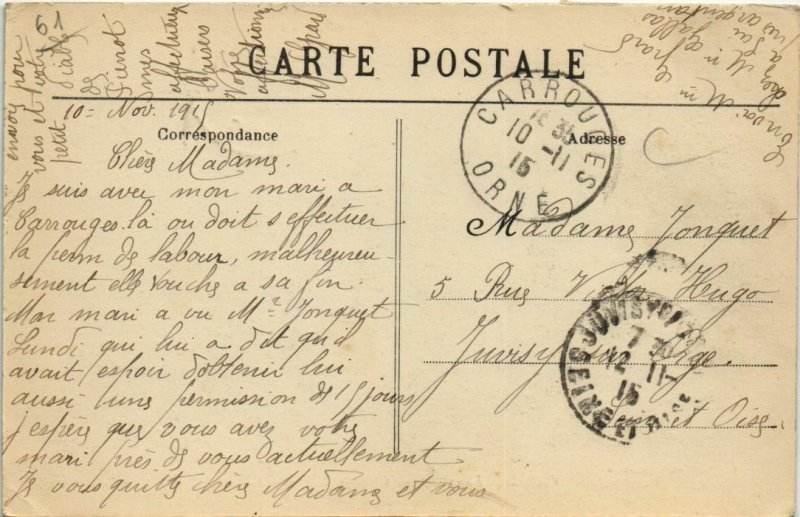 61
CARTE POSTALE
10 = Nov. 1915
Correspondance
Adresse
Chère Madame
Je suis avec mon mari a
Carrouges là ou doit s'effectuer
la perm de labour, malheureu-
sement elle touche a sa fin
Mon mari a vu Mr Jonquet
Lundi qui lui a dit quil
avait espoir d'obtenir lui
aussi une permission de 15 jours
j'espère que vous avez votre
mari près de vous actuellement
Je vous quitte chère Madame et vous
envoy pour
vous et votre
petit diable
de
mes
affectueux
baisers
Votre
CARROUGES
10 -11
15
ORNE
Madame Jonquet
5 Rue Victor Hugo
Juvisy sur Orge
Seine et Oise
JUVISY
7 30
12 -11
15